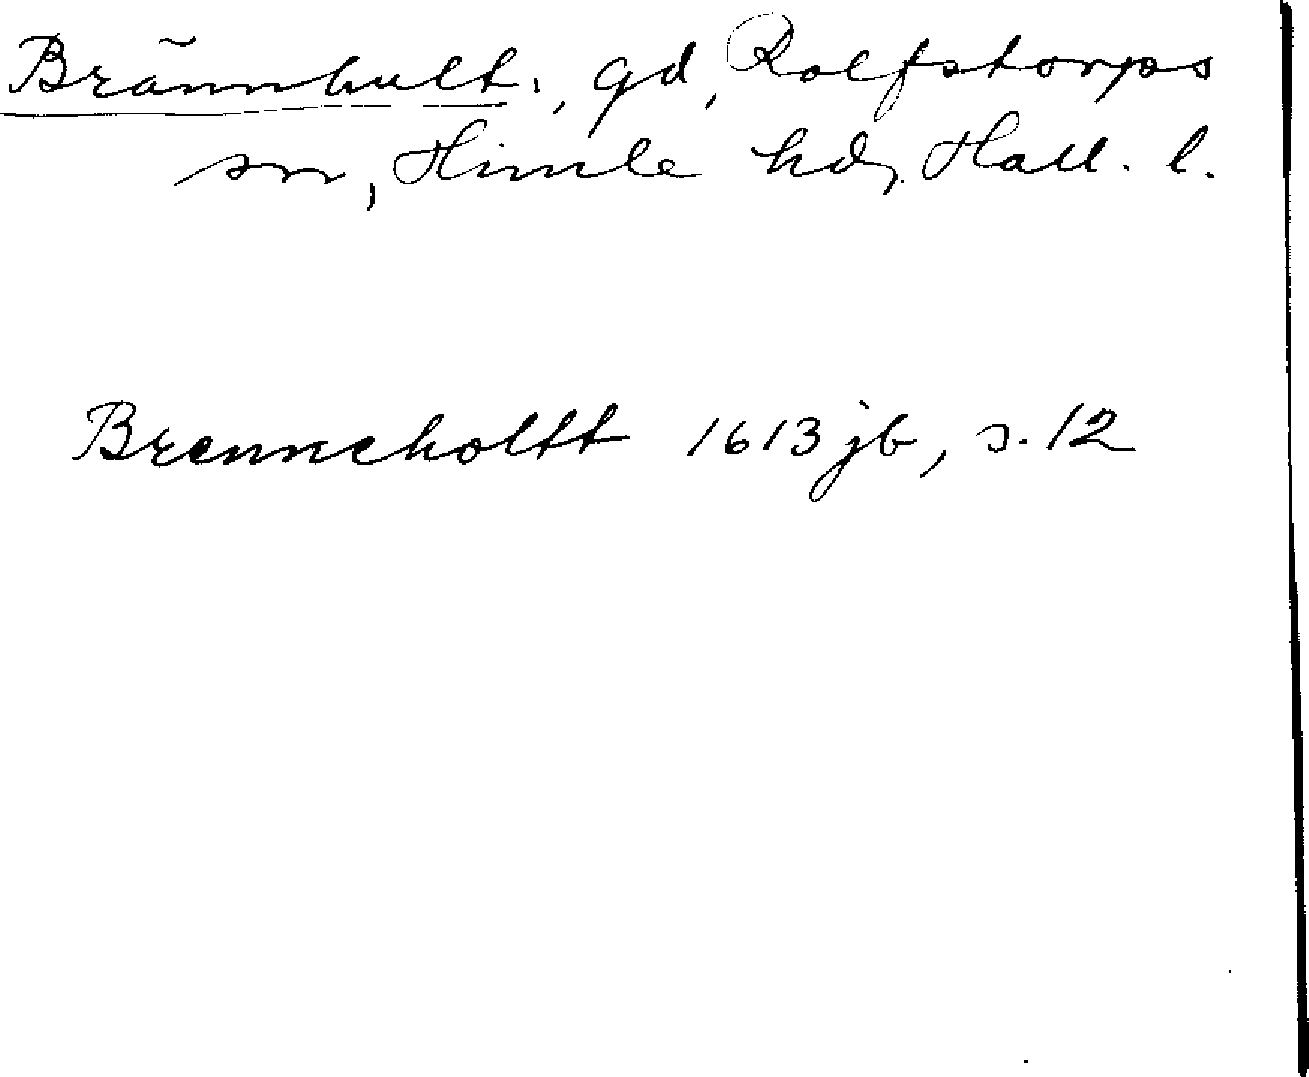 Brännhult., gd, Rolfstorps
sn, Himle hd, Hall. l.
Brenneholtt 1613 jb, s. 12